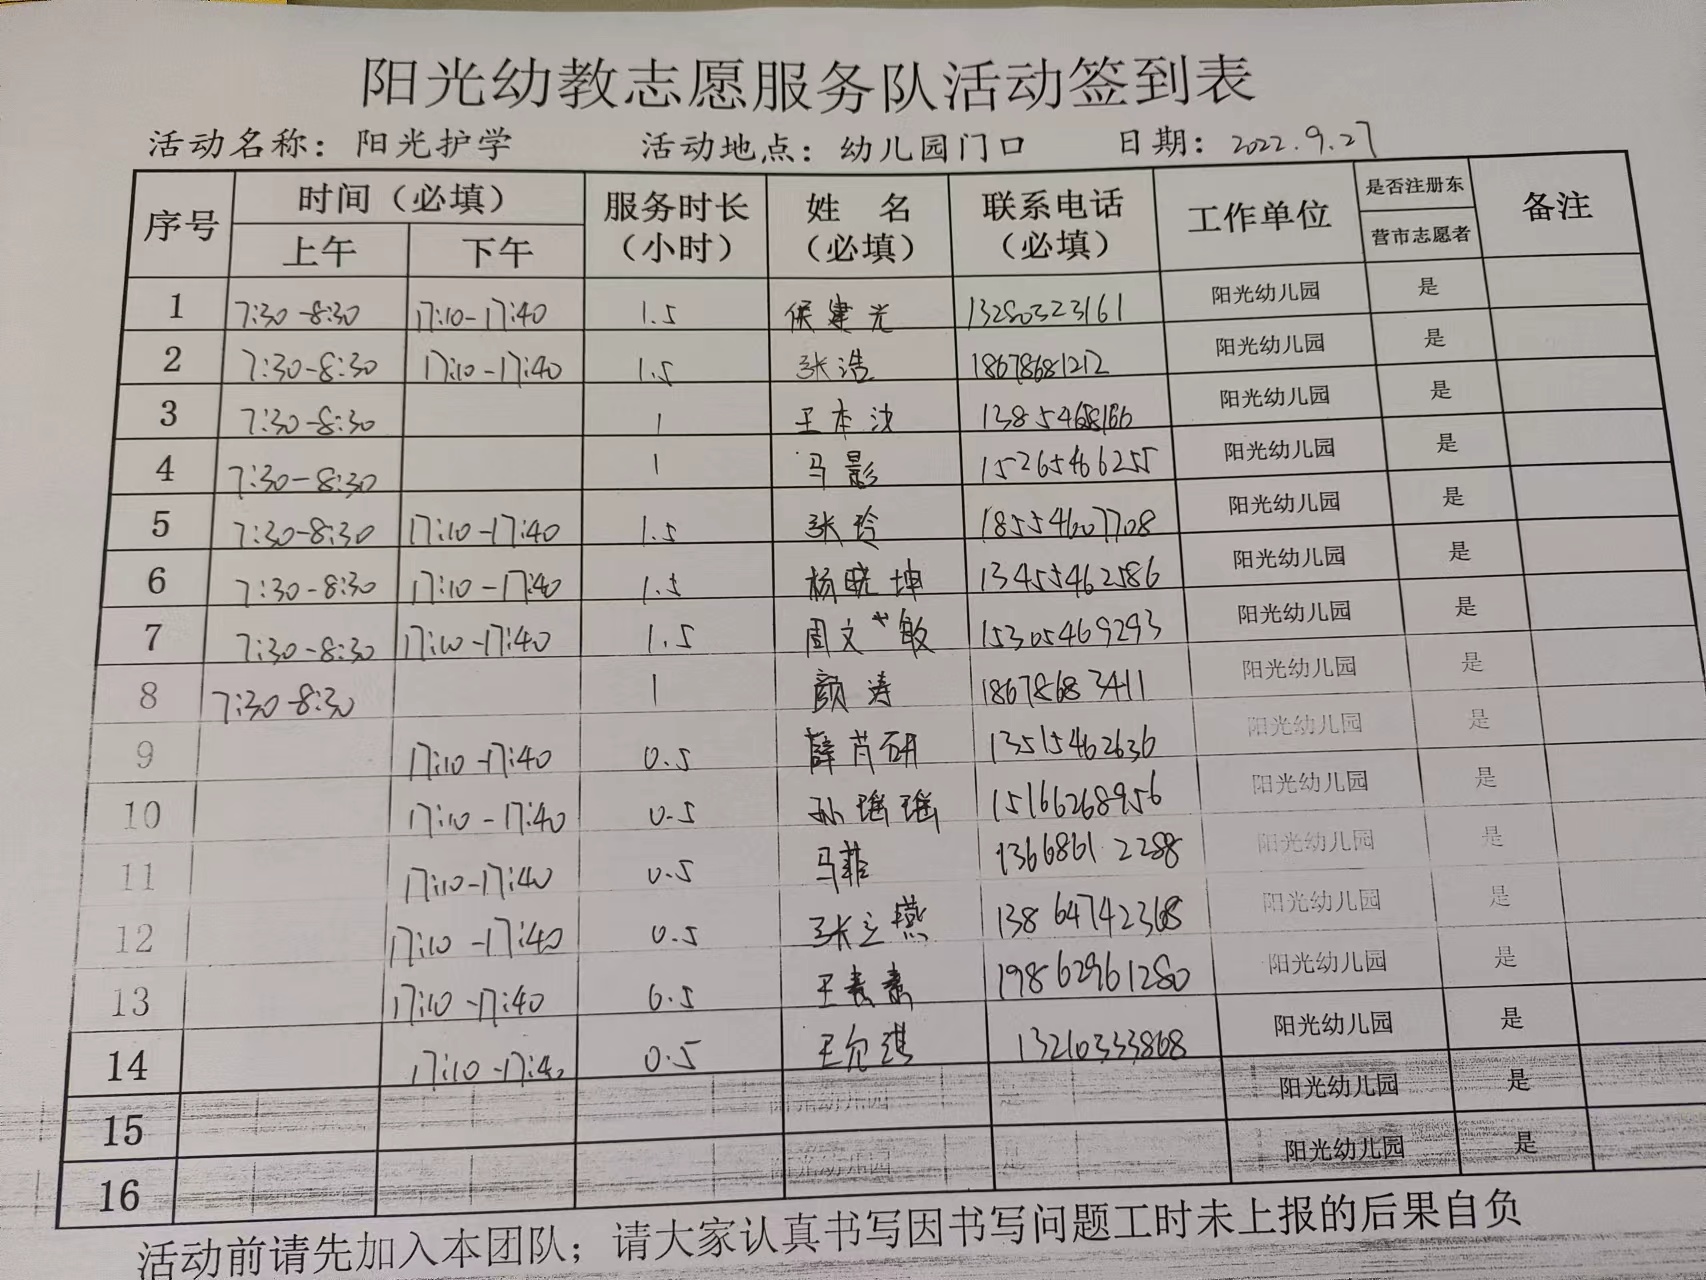 阳光幼教志愿服务队活动签到表
活动名称：阳光护学 活动地点：幼儿园门口 日期：2022.9.27
序号 时间（必填） 服务时长（小时） 姓 名（必填） 联系电话（必填） 工作单位 是否注册东营市志愿者 备注
上午 下午
1 7:30-8:30 17:10-17:40 1.5 侯建光 13280323161 阳光幼儿园 是
2 7:30-8:30 17:10-17:40 1.5 张浩 18678681212 阳光幼儿园 是
3 7:30-8:30 1 王本 阳光幼儿园 是
4 7:30-8:30 1 马影 15265466255 阳光幼儿园 是
5 7:30-8:30 17:10-17:40 1.5 张玲 18554607708 阳光幼儿园 是
6 7:30-8:30 17:10-17:40 1.5 杨晓坤 13455462586 阳光幼儿园 是
7 7:30-8:30 17:10-17:40 1.5 周文敏 15305469293 阳光幼儿园 是
8 7:30-8:30 1 颜涛 18678683411 阳光幼儿园 是
9 17:10-17:40 0.5 薛芃研 13515462636 阳光幼儿园 是
10 17:10-17:40 0.5 孙瑶瑶 15166268956 阳光幼儿园 是
11 17:10-17:40 0.5 马菲 13668612288 阳光幼儿园 是
12 17:10-17:40 0.5 张立燕 13864742368 阳光幼儿园 是
13 17:10-17:40 0.5 王素素 198629961280 阳光幼儿园 是
14 17:10-17:40 0.5 王允琪 13210333868 阳光幼儿园 是
15 阳光幼儿园 是
16 阳光幼儿园 是
活动前请先加入本团队；请大家认真书写因书写问题工时未上报的后果自负